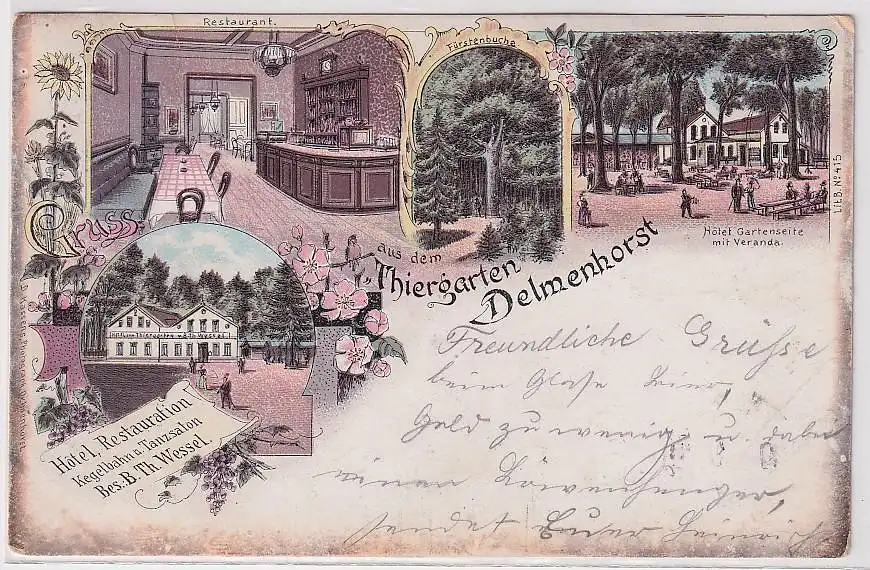 Restaurant.
Fürstenbuche
Hôtel Gartenseite
mit Veranda.
LITH. No 415
Gruss
aus dem
Thiergarten
Delmenhorst
Hôtel, Restauration
Kegelbahn u. Tanzsalon
Bes.: B. Th. Wessel.
Freundliche Grüsse
beim Glase Bier,
Geld zu wenig u. dabei
einen Löwenhunger,
sendet Euer Heinrich